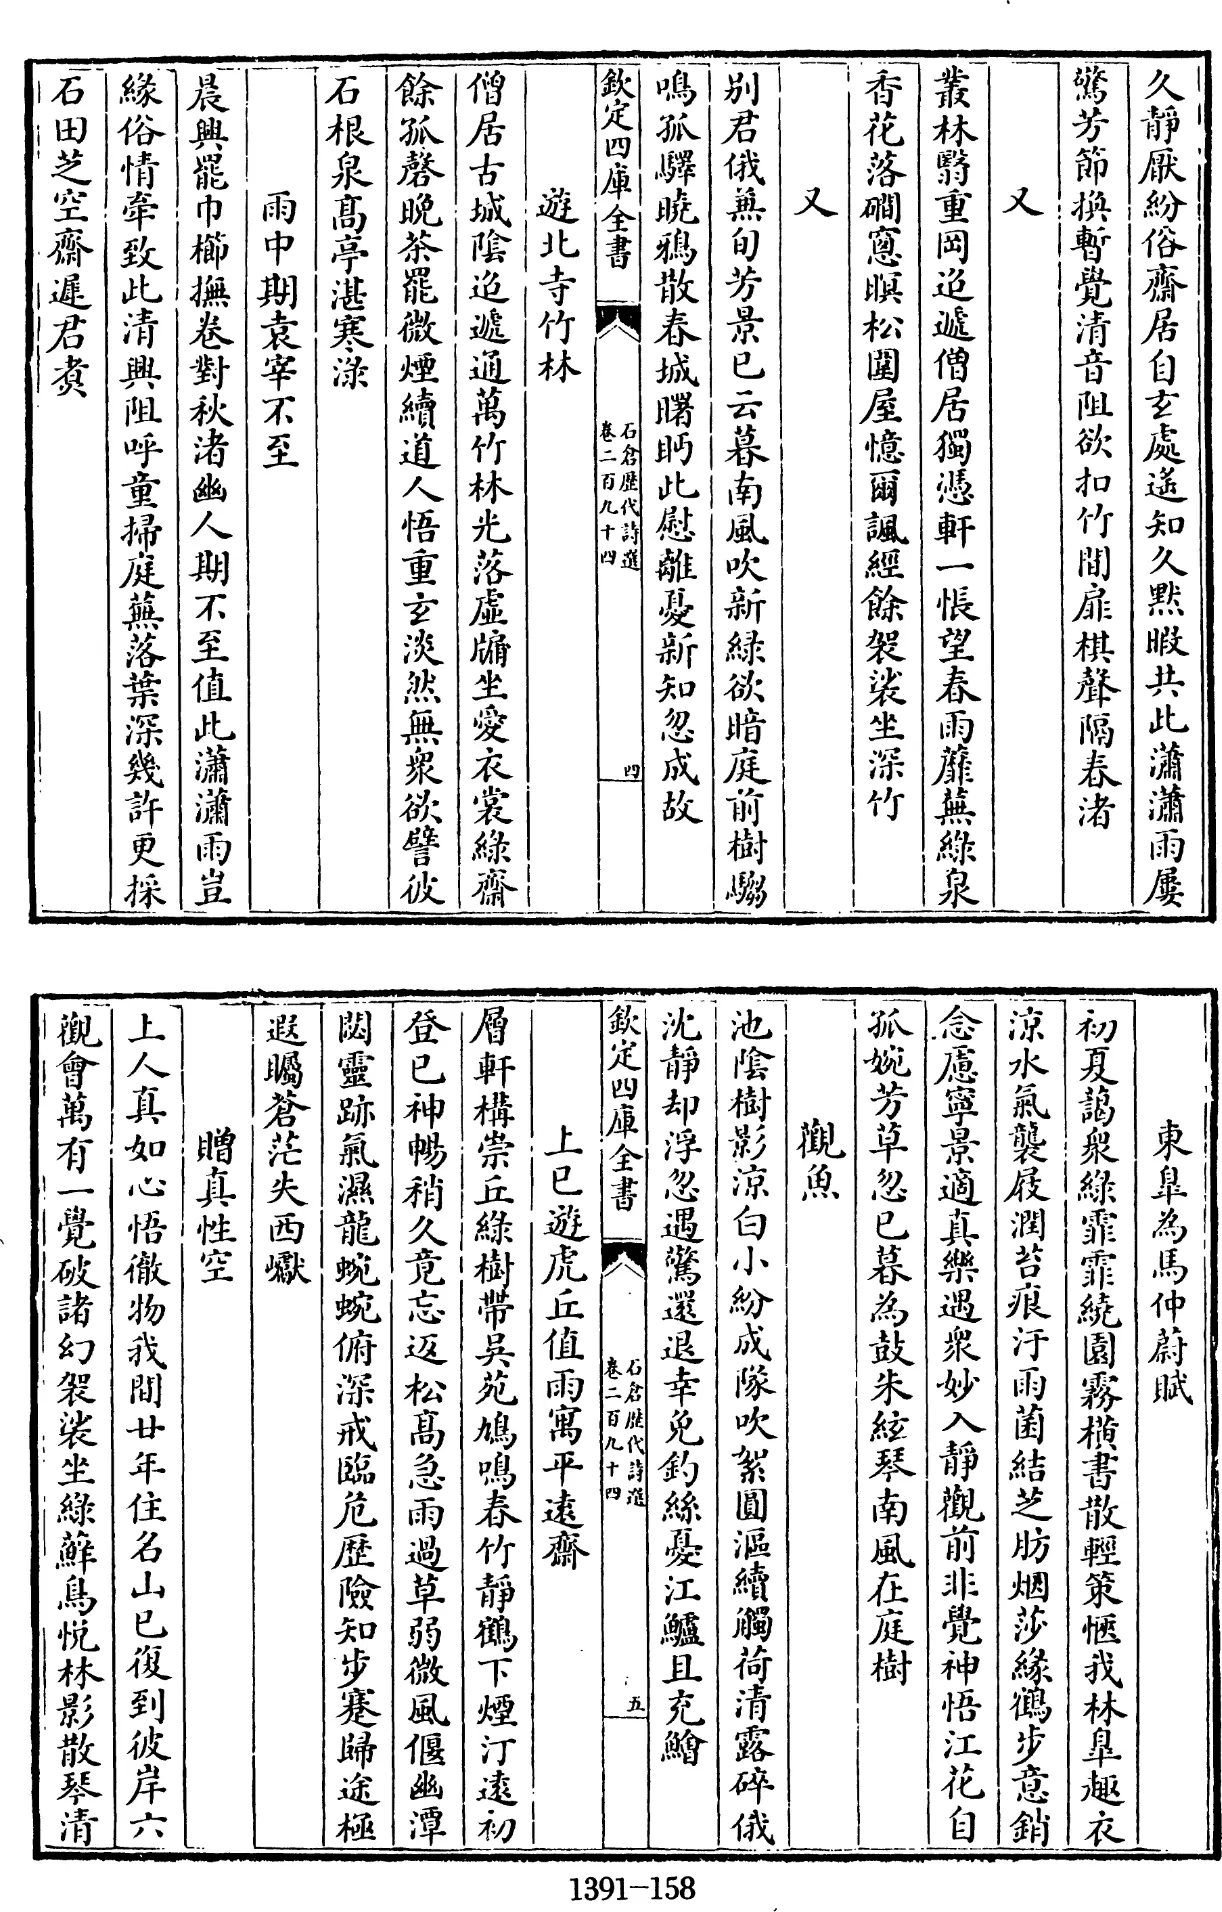 久靜厭紛俗齋居自玄處遙知久黙暇共此瀟瀟雨屢
驚芳節換暫覺清音阻欲扣竹間扉棋聲隔春渚
又
叢林翳重岡迢遞僧居獨憑軒一悵望春雨蘼蕪綠泉
香花落磵窻暝松圍屋憶爾諷經餘袈裟坐深竹
又
别君俄兼旬芳景已云暮南風吹新緑欲暗庭前樹騶
鳴孤驛曉鴉散春城曙眄此慰離憂新知忽成故
欽定四庫全書
石倉歴代詩選
卷二百九十四
四
遊北寺竹林
僧居古城陰迢遞通萬竹林光落虛牖坐愛衣裳綠齋
餘孤磬晚茶罷微煙續道人悟重玄淡然無衆欲譬彼
石根泉髙亭湛寒渌
雨中期袁宰不至
晨興罷巾櫛撫卷對秋渚幽人期不至值此瀟瀟雨豈
緣俗情牽致此清興阻呼童掃庭蕪落葉深幾許更採
石田芝空齋遲君煑
東臯為馬仲蔚賦
初夏藹衆綠霏霏繞園霧横書散輕策愜我林臯趣衣
涼水氣襲屐潤苔痕汙雨菌結芝肪烟莎緣鶴步意銷
念慮寧景適真樂遇衆妙入靜觀前非覺神悟江花自
孤婉芳草忽已暮為鼓朱絃琴南風在庭樹
觀魚
池陰樹影涼白小紛成隊吹絮圓漚續觸荷清露碎俄
沈靜却浮忽遇驚還退幸免釣絲憂江鱸且充鱠
欽定四庫全書
石倉歴代詩選
卷二百九十四
五
上巳遊虎丘值雨寓平遠齋
層軒構崇丘綠樹帶吳苑鳩鳴春竹靜鶴下煙汀遠初
登已神暢稍久竟忘返松髙急雨過草弱微風偃幽潭
閟靈跡氣濕龍蜿蜿俯深戒臨危歴險知步蹇歸途極
遐矚蒼茫失西巘
贈真性空
上人真如心悟徹物我間廿年住名山已復到彼岸六
觀會萬有一覺破諸幻袈裟坐綠蘚鳥悦林影散琴清
1391-158